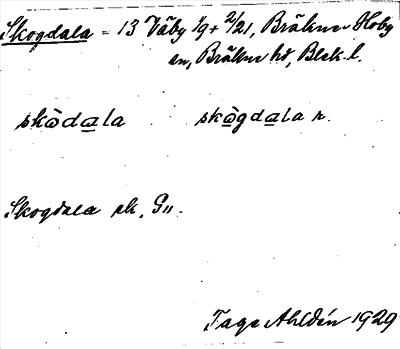 Skogdala = 13 Väby 1/9 + 2/21, Bräkne-Hoby
sn, Bräkne hd, Blek. l.
skòdala skògdala r.
Skogdala sk. G11.
Tage Ahldén 1929